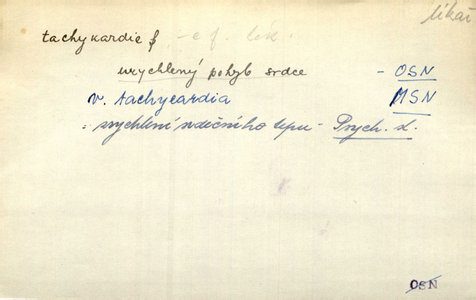 lékař
tachykardie f -e f. lék.
urychlený pohyb srdce - OSN
v. tachycardia MSN
= zrychlení srdečního tepu - Psych. sl.
OSN